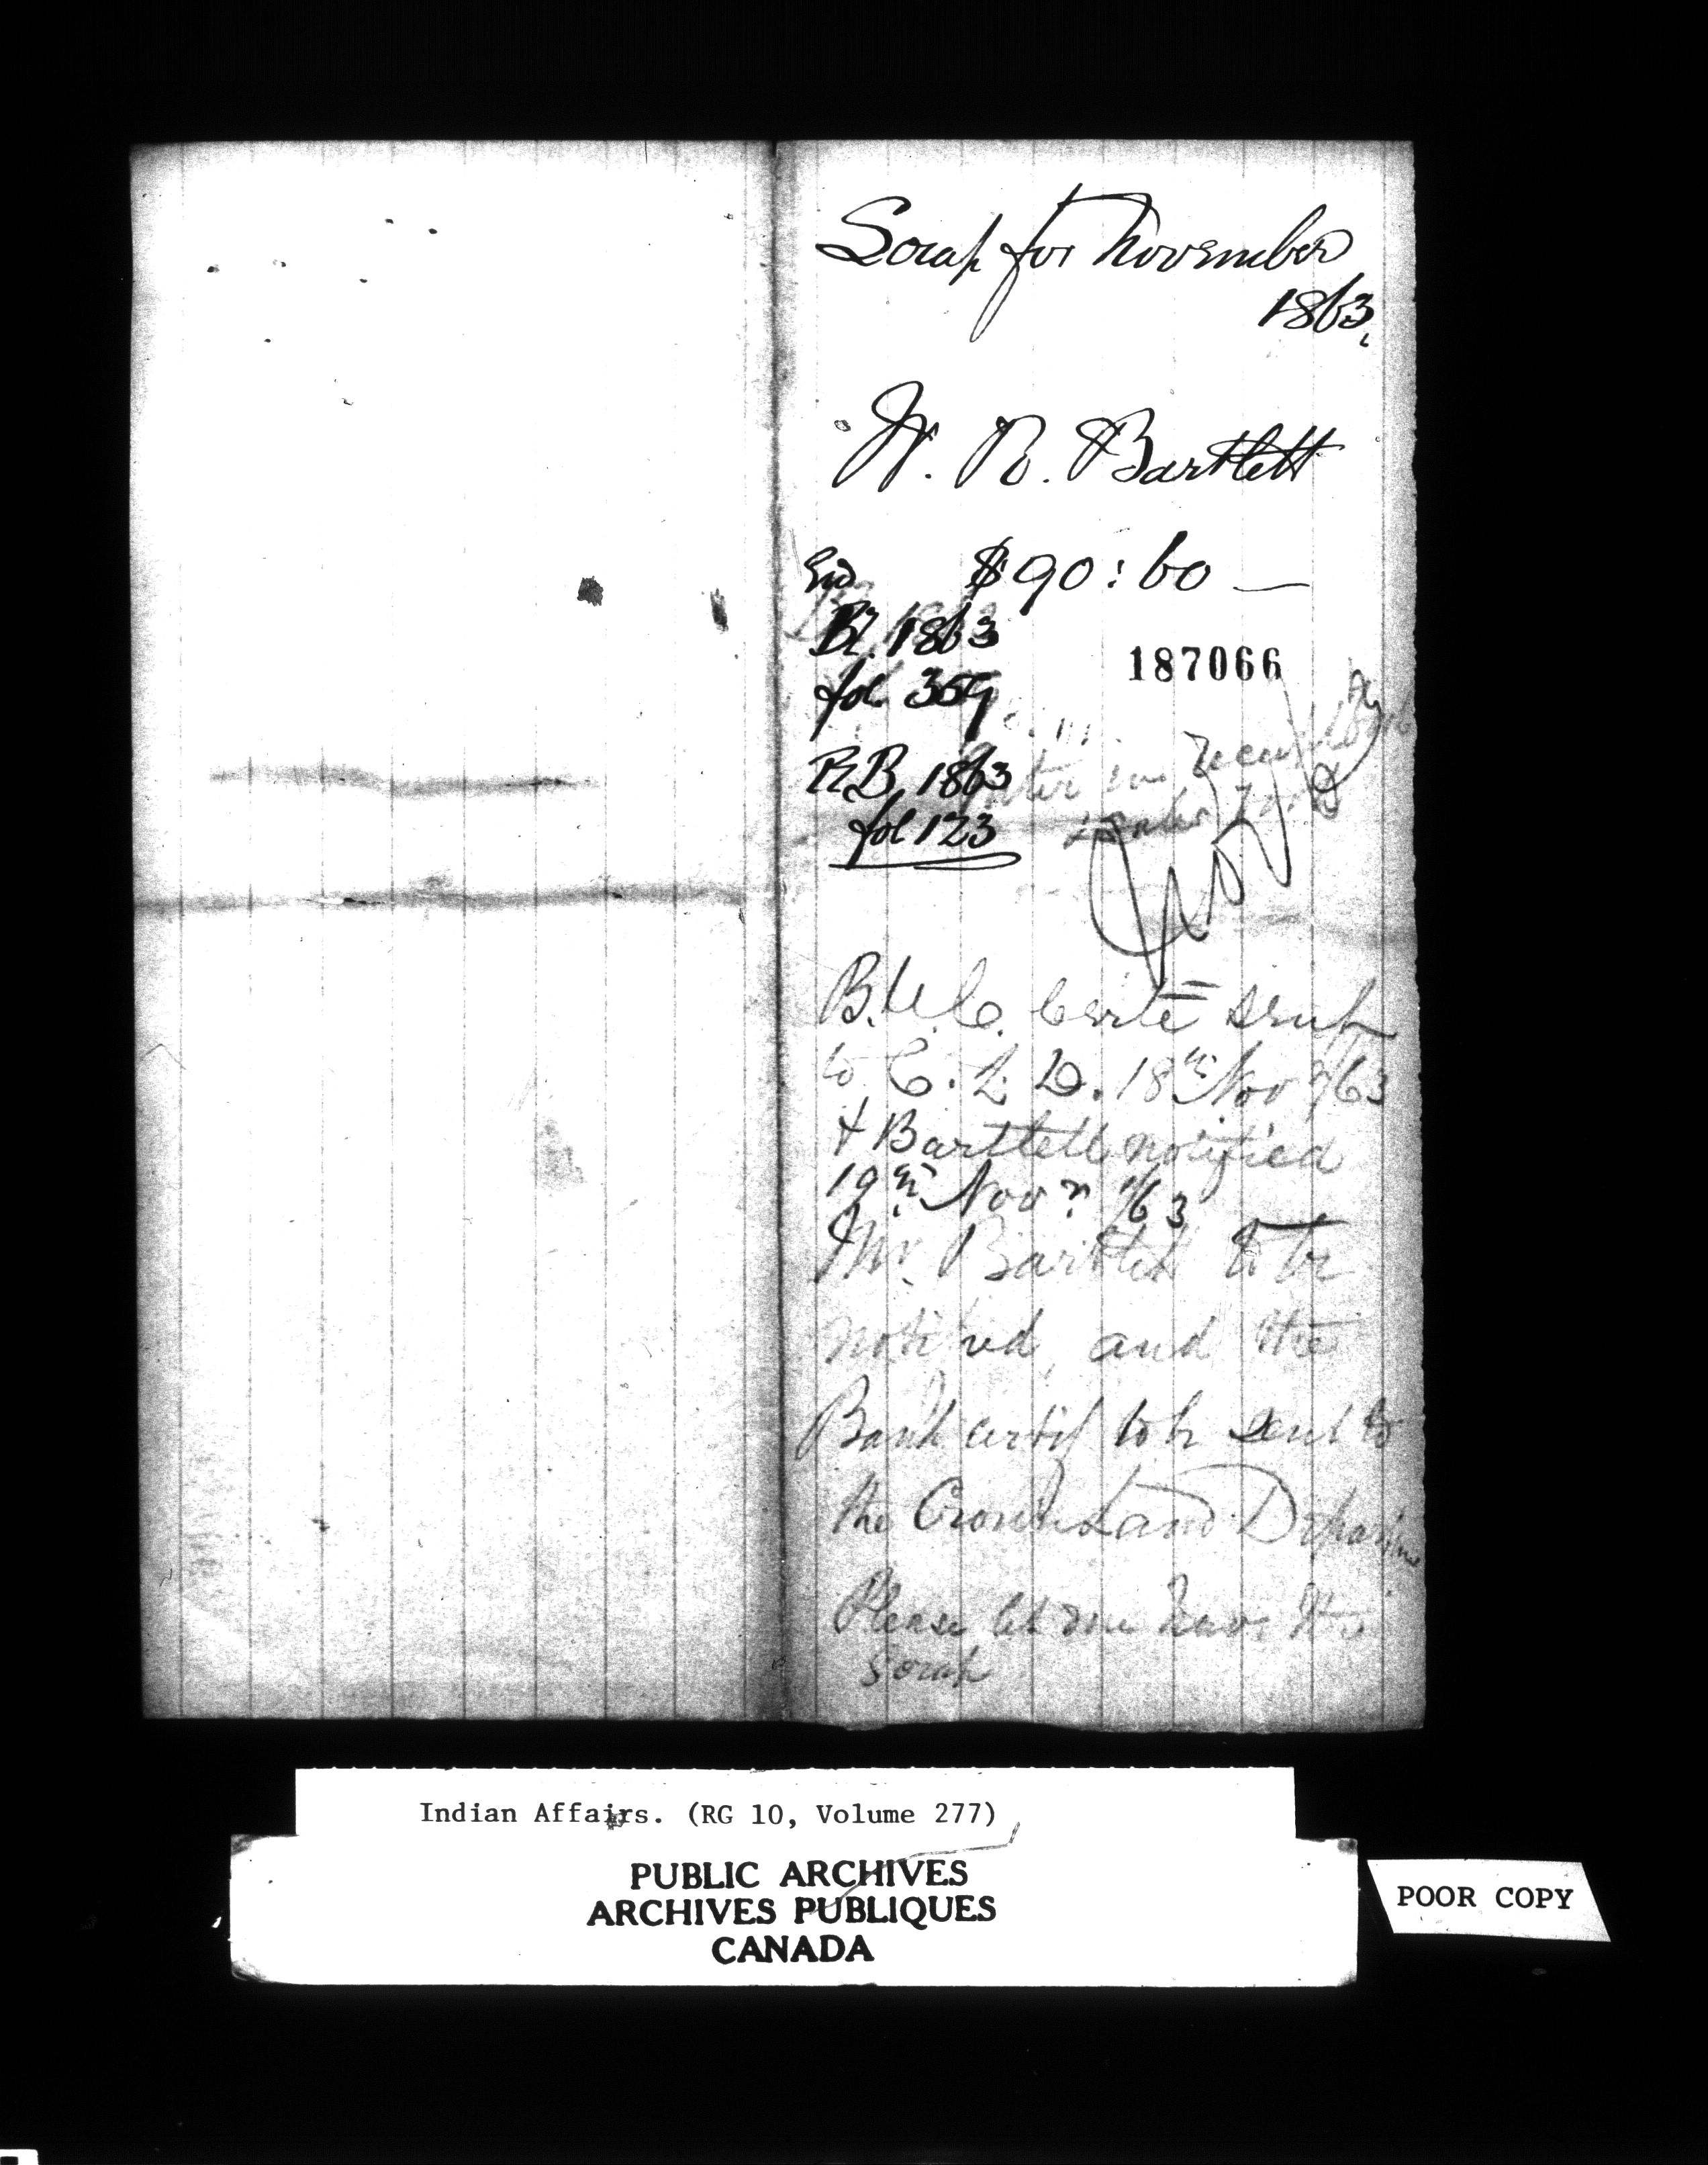 Scrap for November
1863.
W. R. Bartlett
End $90:60 —
Bk. 1863
fol. 359
187066
R.B. 1863
fol 123
Enter in Receipt Book
B.U.C. Certe sent
to C. L. D. 18th Nov 1/63
& Bartlett notified
19th Novr. 1/63
Mr. Bartlett to be
notified, and the
Bank certif to be sent to
the Crown Land Departm
Please let me have the
scrap
Indian Affairs. (RG 10, Volume 277)
PUBLIC ARCHIVES
ARCHIVES PUBLIQUES
CANADA
POOR COPY